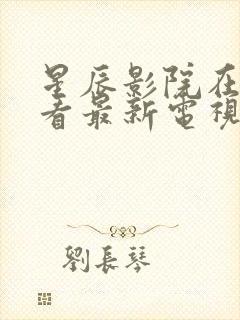 星辰影院在
看最新電視
劉長琴